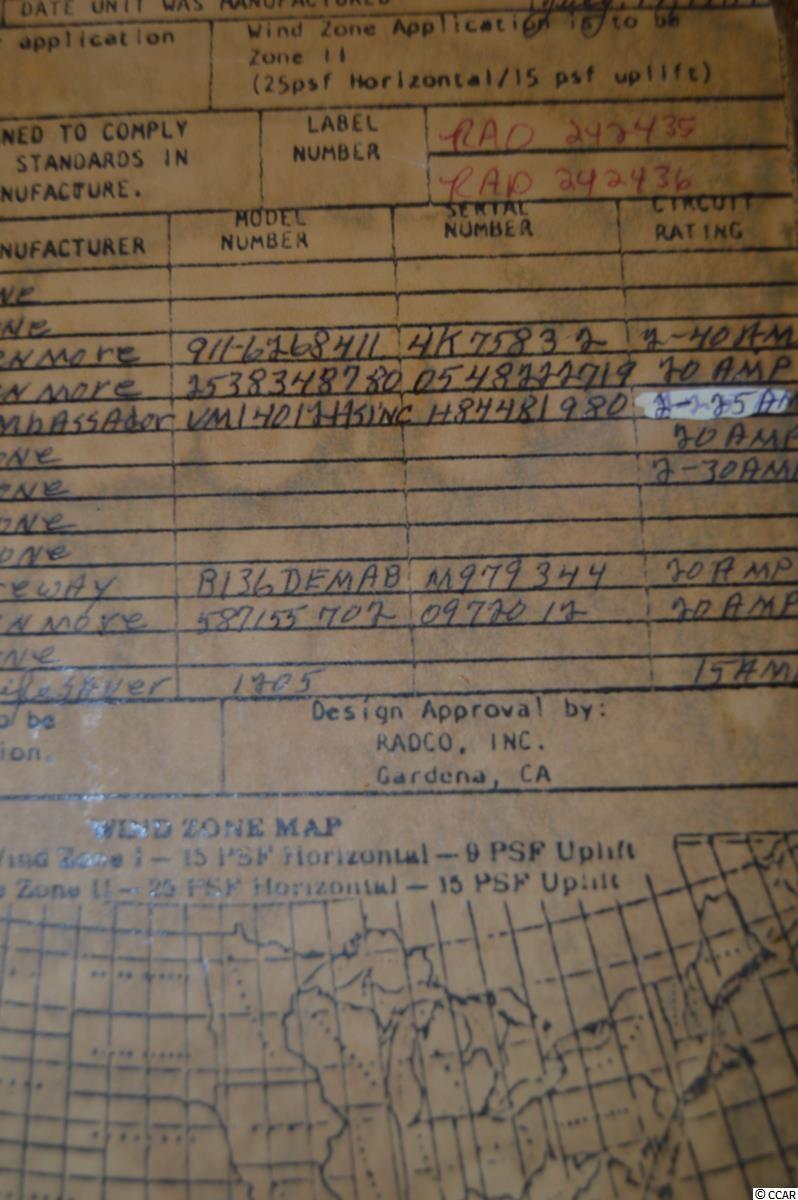 DATE UNIT WAS MANUFACTURED
application
Wind Zone Application is to be
Zone II
(25psf Horizontal/15 psf uplift)
NED TO COMPLY
STANDARDS IN
NUFACTURE.
LABEL
NUMBER
RAD 242435
RAD 242436
NUFACTURER
MODEL
NUMBER
SERIAL
NUMBER
CIRCUIT
RATING
NE
ONE
ENMORE 911-6268411 4K75832 2-40 AM
ENMORE 2538348780 0548222719 20 AMP
mbassador H84481980
20 AMP
ONE 2-30AM
ONE
ONE
ONE
teway B136DEMAB M979344 20 AMP
ENMORE 587155702 0972012 20 AMP
ONE
ifesaver 1205 15 AM
o be
ion.
Design Approval by:
RADCO, INC.
Gardena, CA
WIND ZONE MAP
Wind Zone I — 15 PSF Horizontal — 9 PSF Uplift
e Zone II — 25 PSF Horizontal — 15 PSF Uplift
© CCAR